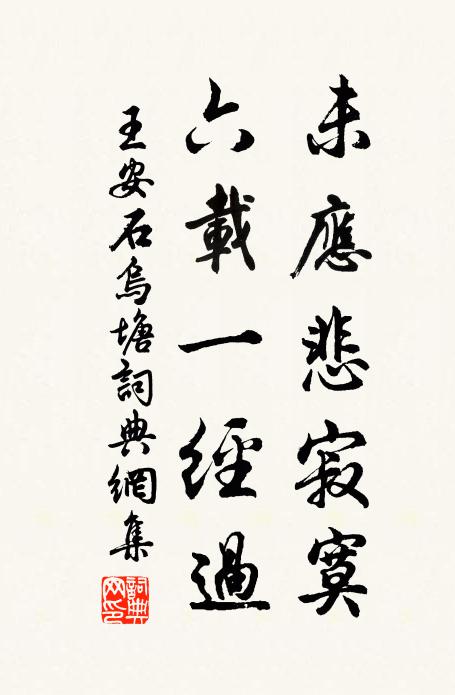 未應悲寂寞
六載一經過
王安石烏塘詞典網集
詞典网印